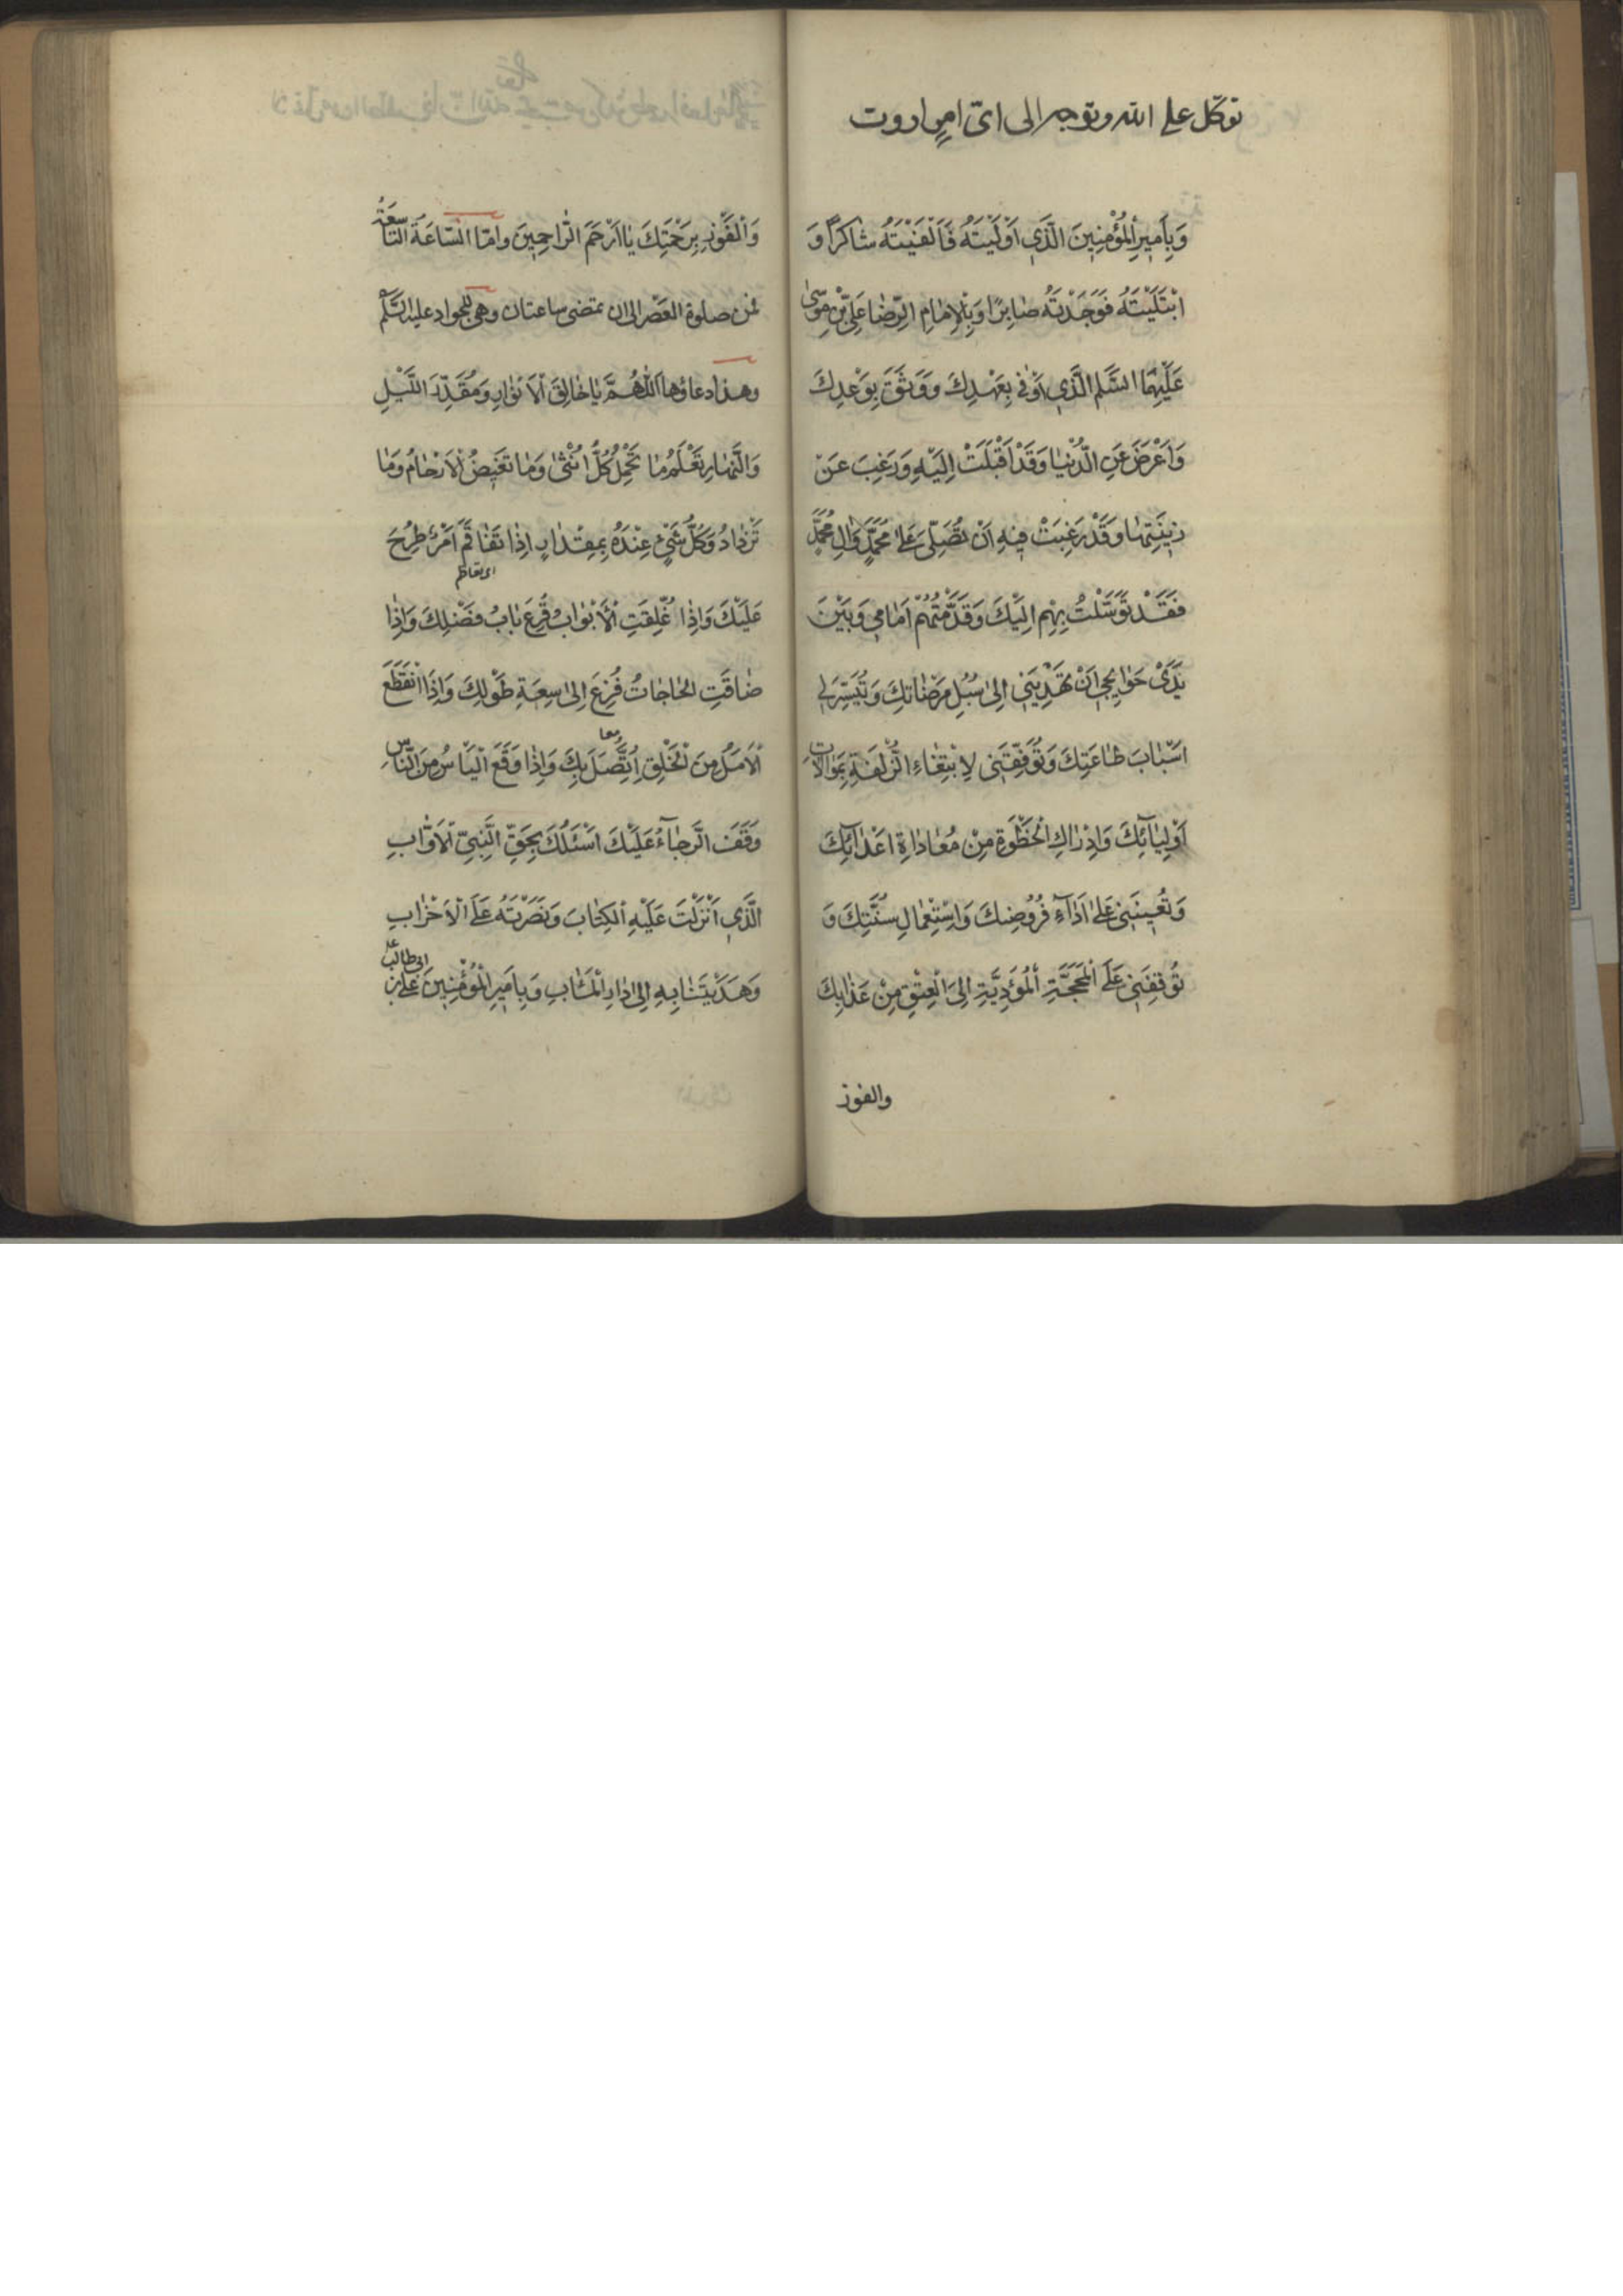 توكّل على الله وتوجه الى اىّ امرٍ اردت
وَبِاَمِيرِ الْمُؤْمِنِينَ الَّذِي اَوْلَيْتَهُ فَاَلْفَيْتَهُ شاكِرًا وَ
ابْتَلَيْتَهُ فَوَجَدْتَهُ صابِرًا وَبِالْاِمامِ الرِّضا عَلِيِّ بْنِ مُوسىٰ
عَلَيْهِمَا السَّلم الَّذِي اَوْفىٰ بِعَهْدِكَ وَوَثِقَ بِوَعْدِكَ
وَاَعْرَضَ عَنِ الدُّنْيا وَقَدْ اَقْبَلَتْ اِلَيْهِ وَرَغِبَ عَنْ
زِينَتِها وَقَدْ رَغِبَتْ فِيهِ اَنْ تُصَلِّىَ عَلىٰ مُحَمَّدٍ وَاٰلِ مُحَمَّدٍ
فَقَدْ تَوَسَّلْتُ بِهِمْ اِلَيْكَ وَقَدَّمْتُهُمْ اَمامِي وَبَيْنَ
يَدَىْ حَوائِجِي اَنْ تَهْدِيَنِي اِلىٰ سُبُلِ مَرْضاتِكَ وَتُيَسِّرَ لِي
اَسْبابَ طاعَتِكَ وَتُوَفِّقَنِي لِابْتِغاءِ الزُّلْفَةِ بِمُوالاتِ
اَوْلِيائِكَ وَاِدْراكِ الْحُظْوَةِ مِنْ مُعاداةِ اَعْدائِكَ
وَتُعِينَنِي عَلىٰ اَداءِ فُرُوضِكَ وَاسْتِعْمالِ سُنَّتِكَ وَ
تُوقِفَنِي عَلَى الْمَحَجَّةِ الْمُؤَدِّيَةِ اِلَى الْعِتْقِ مِنْ عَذابِكَ
والفوز
وَالْفَوْزِ بِرَحْمَتِكَ يا اَرْحَمَ الرّاحِمِينَ وامّا السّاعَة التّاسِعَة
فمن صلوة العَصْر الى ان تمضى ساعتان وهى للجواد عليه السَّلم
وهذا دعاؤها اَللّٰهُمَّ يا خالِقَ الْاَنْوارِ وَمُقَدِّرَ اللَّيْلِ
وَالنَّهارِ تَعْلَمُ ما تَحْمِلُ كُلُّ اُنْثىٰ وَما تَغِيضُ الْاَرْحامُ وَما
تَزْدادُ وَكُلُّ شَيْءٍ عِنْدَهُ بِمِقْدارٍ اِذا تَفاقَمَ اَمْرٌ طُرِحَ
اى تعاظم
عَلَيْكَ وَاِذا غُلِّقَتِ الْاَبْوابُ قُرِعَ بابُ فَضْلِكَ وَاِذا
ضاقَتِ الْحاجاتُ فُزِعَ اِلىٰ سِعَةِ طَوْلِكَ وَاِذَا انْقَطَعَ
الْاَمَلُ مِنَ الْخَلْقِ اِتَّصَلَ بِكَ وَاِذا وَقَعَ الْيَاْسُ مِنَ النّاسِ
وَقَفَ الرَّجاءُ عَلَيْكَ اَسْئَلُكَ بِحَقِّ النَّبِيِّ الْاَوّابِ
الَّذِي اَنْزَلْتَ عَلَيْهِ الْكِتابَ وَنَصَرْتَهُ عَلَى الْاَحْزابِ
وَهَدَيْتَنا بِهِ اِلىٰ دارِ الْمَئابِ وَبِاَمِيرِ الْمُؤْمِنِينَ عَلِيِّ بْنِ ابى طالب